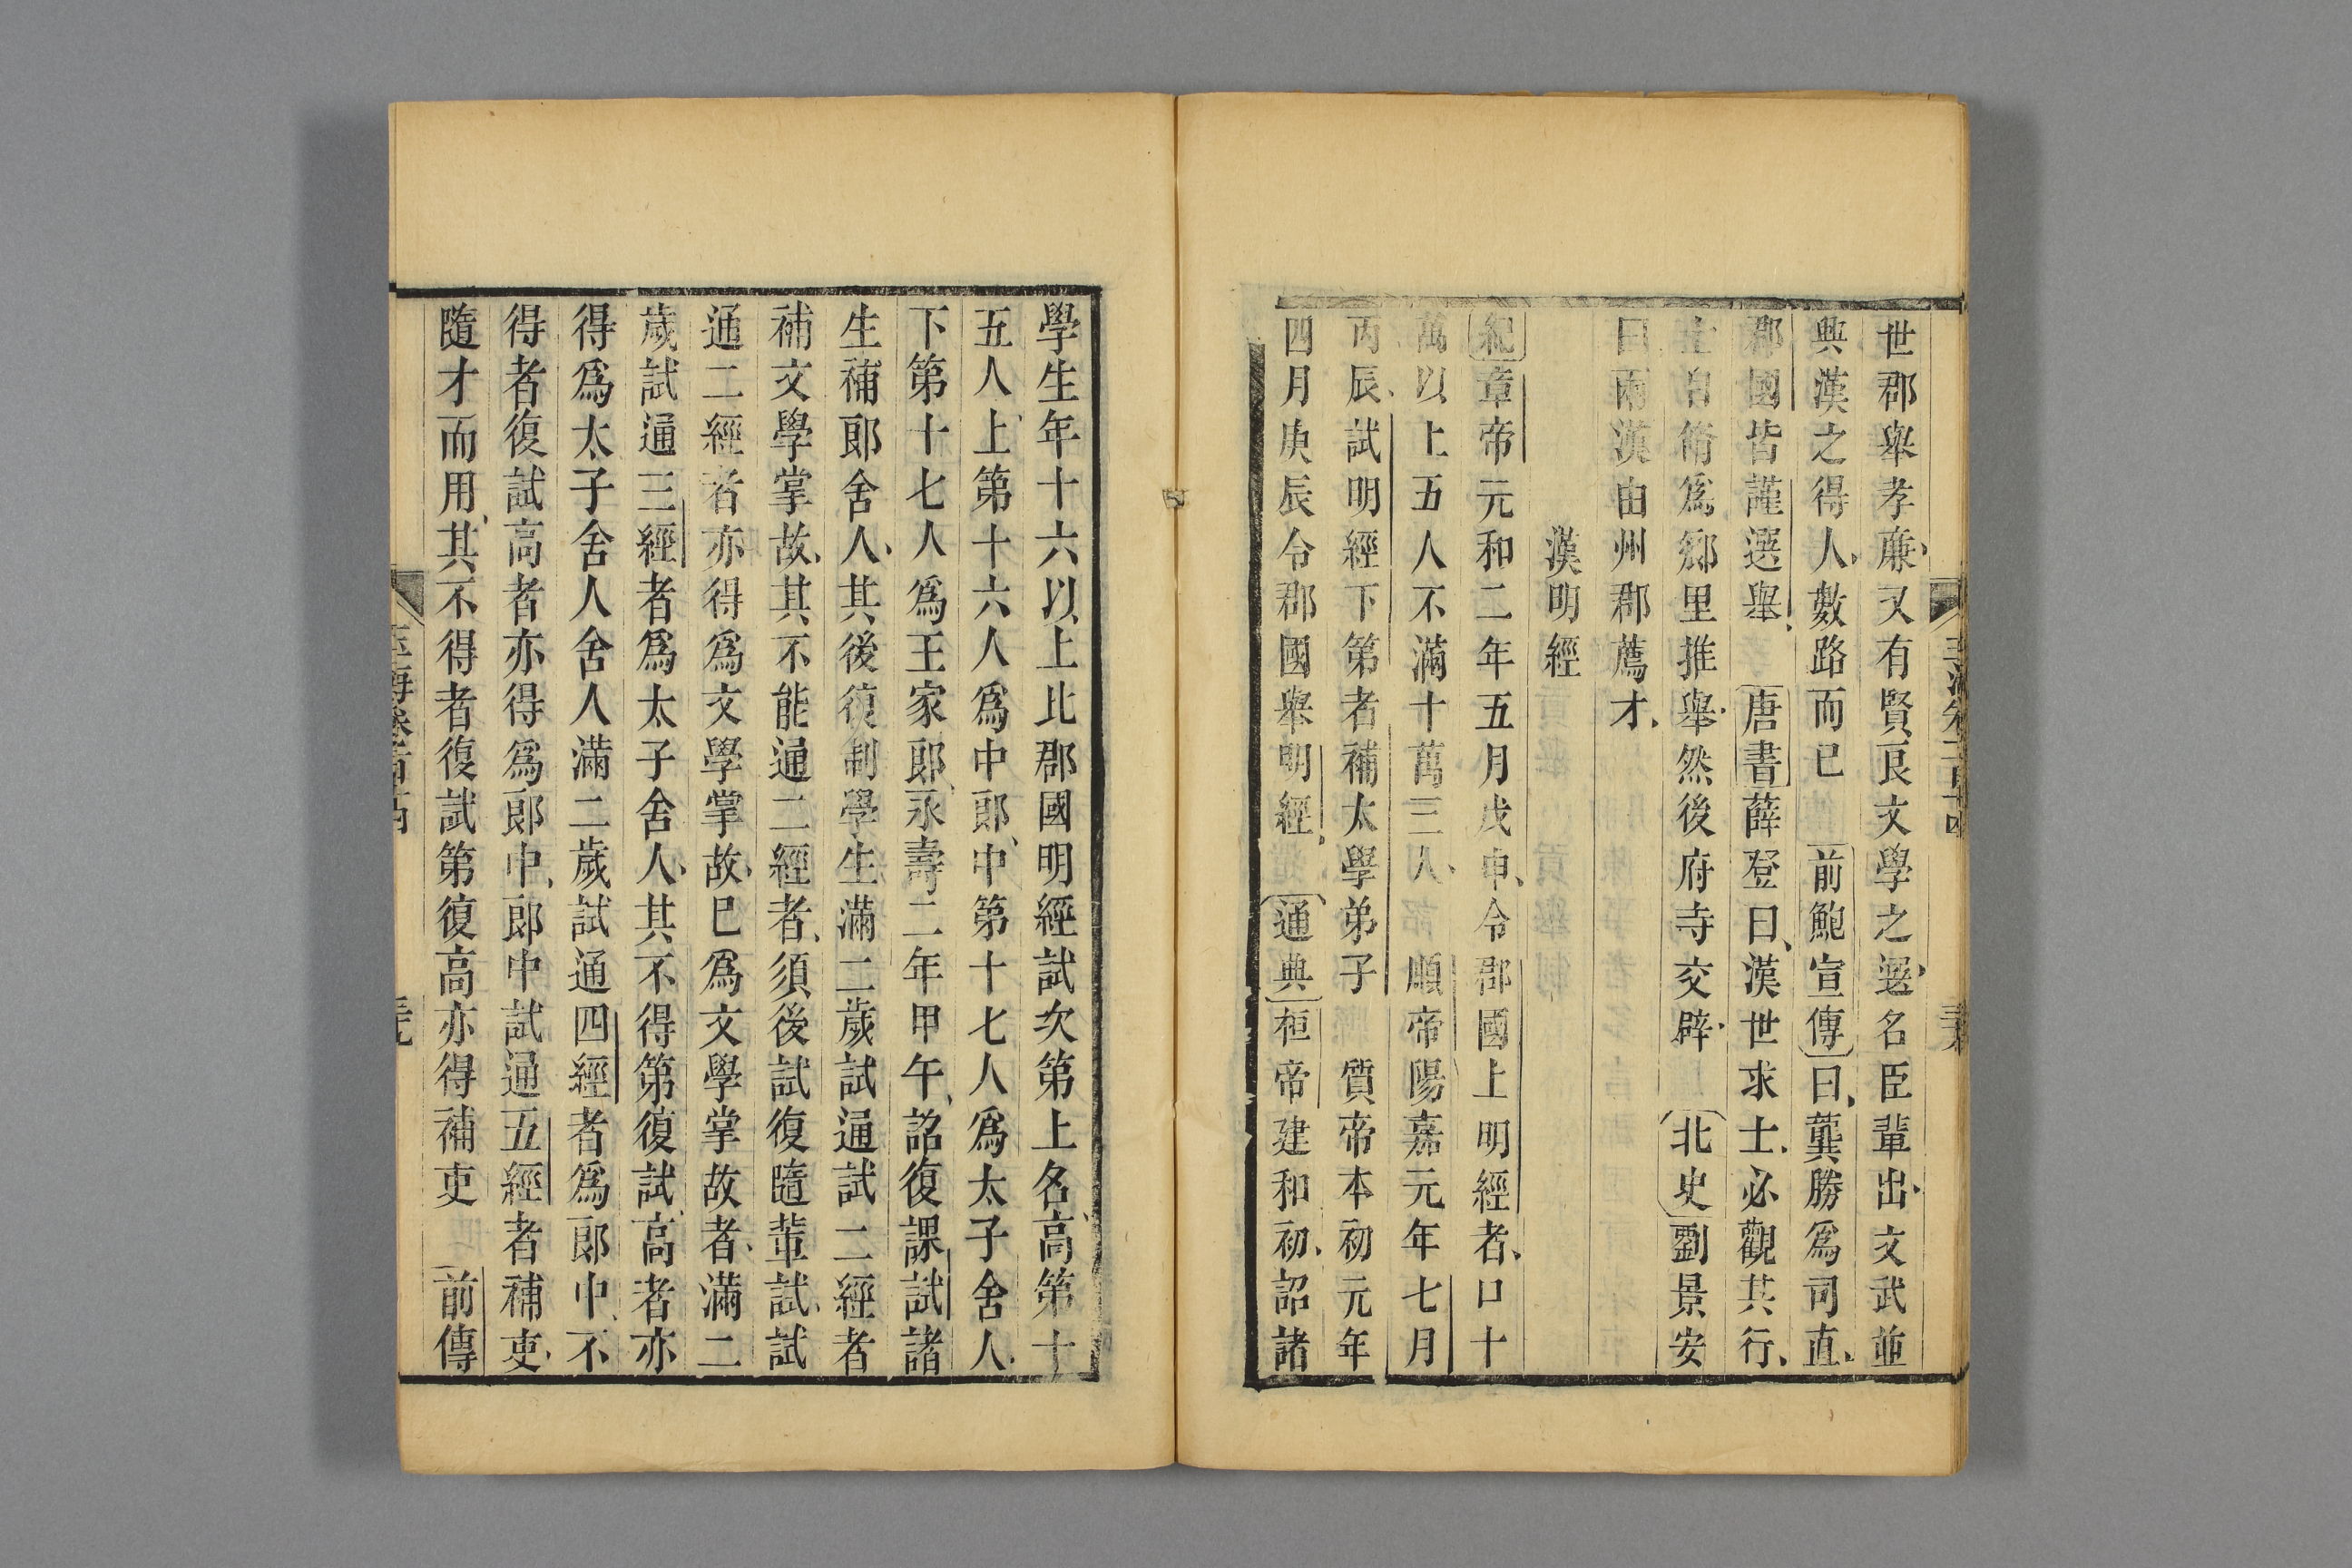 世郡舉孝廉又有賢良文學之選名臣輩出文武並
興漢之得人數路而已　前鮑宣傳曰龔勝爲司直
郡國皆謹選舉　唐書薛登曰漢世求士必觀其行
士自脩爲鄉里推舉然後府寺交辟　北史劉景安
曰兩漢由州郡薦才
漢明經
紀章帝元和二年五月戊申令郡國上明經者口十
萬以上五人不滿十萬三人　順帝陽嘉元年七月
丙辰試明經下第者補太學弟子　質帝本初元年
四月庚辰令郡國舉明經　通典桓帝建和初詔諸
學生年十六以上比郡國明經試次第上名高第十
五人上第十六人爲中郎中第十七人爲太子舍人
下第十七人爲王家郎永壽二年甲午詔復課試諸
生補郎舍人其後復制學生滿二歲試通試二經者
補文學掌故其不能通二經者須後試復隨輩試試
通二經者亦得爲文學掌故已爲文學掌故者滿二
歲試通三經者爲太子舍人其不得第復試高者亦
得爲太子舍人舍人滿二歲試通四經者爲郎中不
得者復試高者亦得爲郎中郎中試通五經者補吏
隨才而用其不得者復試第復高亦得補吏　前傳